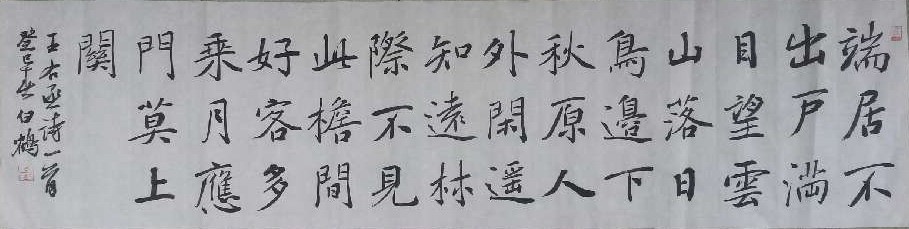 端居不
出戶滿
目望雲
山落日
鳥邊下
秋原人
外閑遥
知遠林
際不見
此檐間
好客多
乘月應
門莫上
關
王右丞诗一首
癸巳白鶴